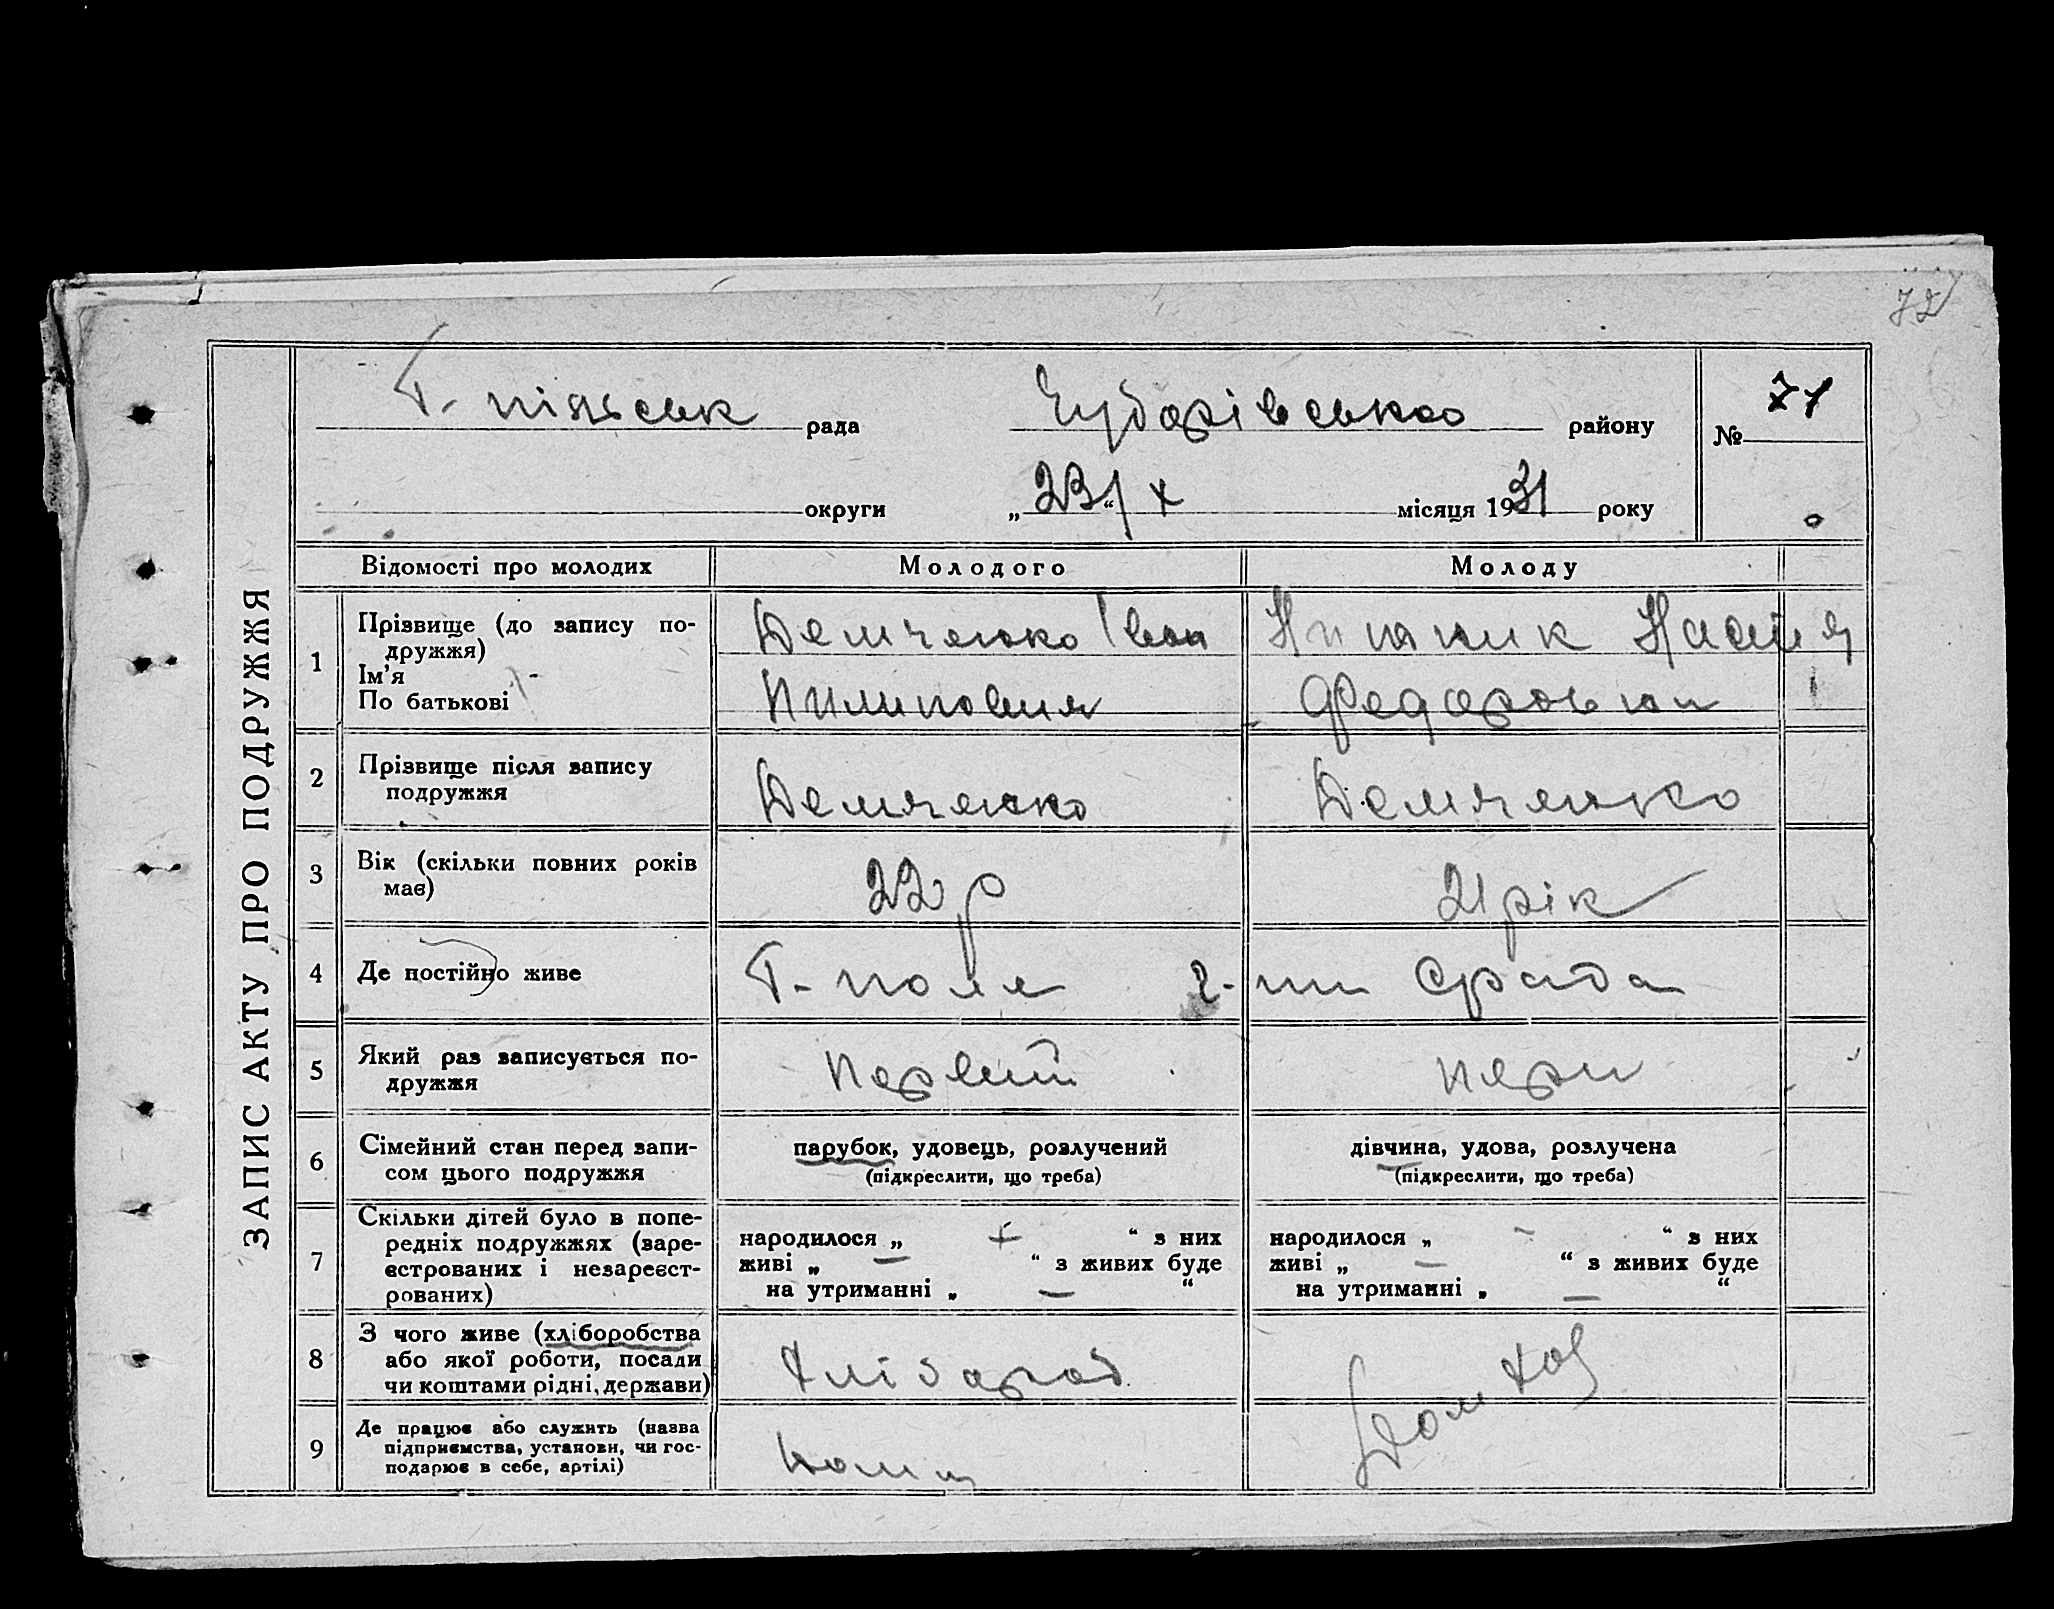 72
ЗАПИС АКТУ ПРО ПОДРУЖЖЯ
Г. рада Чубарівсько району № 71
округи „23“/X місяця 1931 року
Відомості про молодих Молодого Молоду
1 Прізвище (до запису по-
дружжя)
Ім'я
По батькові
Демченко Іван
Пилиповия
Настя
Федоровна
2 Прізвище після запису
подружжя
Демченко Демченко
3 Вік (скільки повних років
має)
22 р 21 рік
4 Де постійно живе
Г. поле
5 Який раз записується по-
дружжя
Первий перш
6 Сімейний стан перед запи-
сом цього подружжя
парубок, удовець, розлучений
(підкреслити, що треба)
дівчина, удова, розлучена
(підкреслити, що треба)
7 Скільки дітей було в попе-
редніх подружжях (заре-
єстрованих і незареєст-
рованих)
народилося „ — “ з них
живі „ — “ з живих буде
на утриманні „ — “
народилося „ - “ з них
живі „ — “ з живих буде
на утриманні „ — “
8 З чого живе (хліборобства
або якої роботи, посади
чи коштами рідні, держави)
Хлібороб
Дом хоз
9 Де працює або служить (назва
підприємства, установи, чи гос-
подарює в себе, артілі)